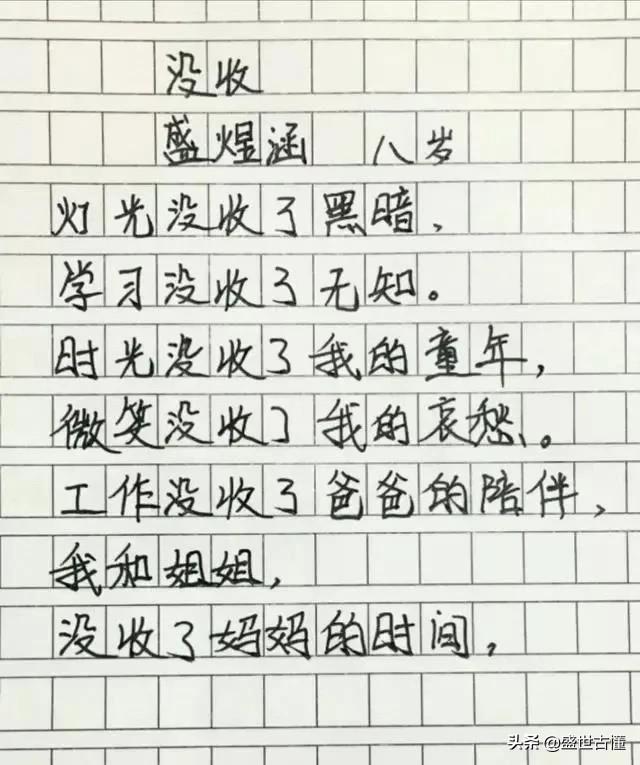 没收
盛煜涵 八岁
灯光没收了黑暗、
学习没收了无知。
时光没收了我的童年，
微笑没收了我的哀愁。
工作没收了爸爸的陪伴，
我和姐姐，
没收了妈妈的时间，
头条 @盛世古懂